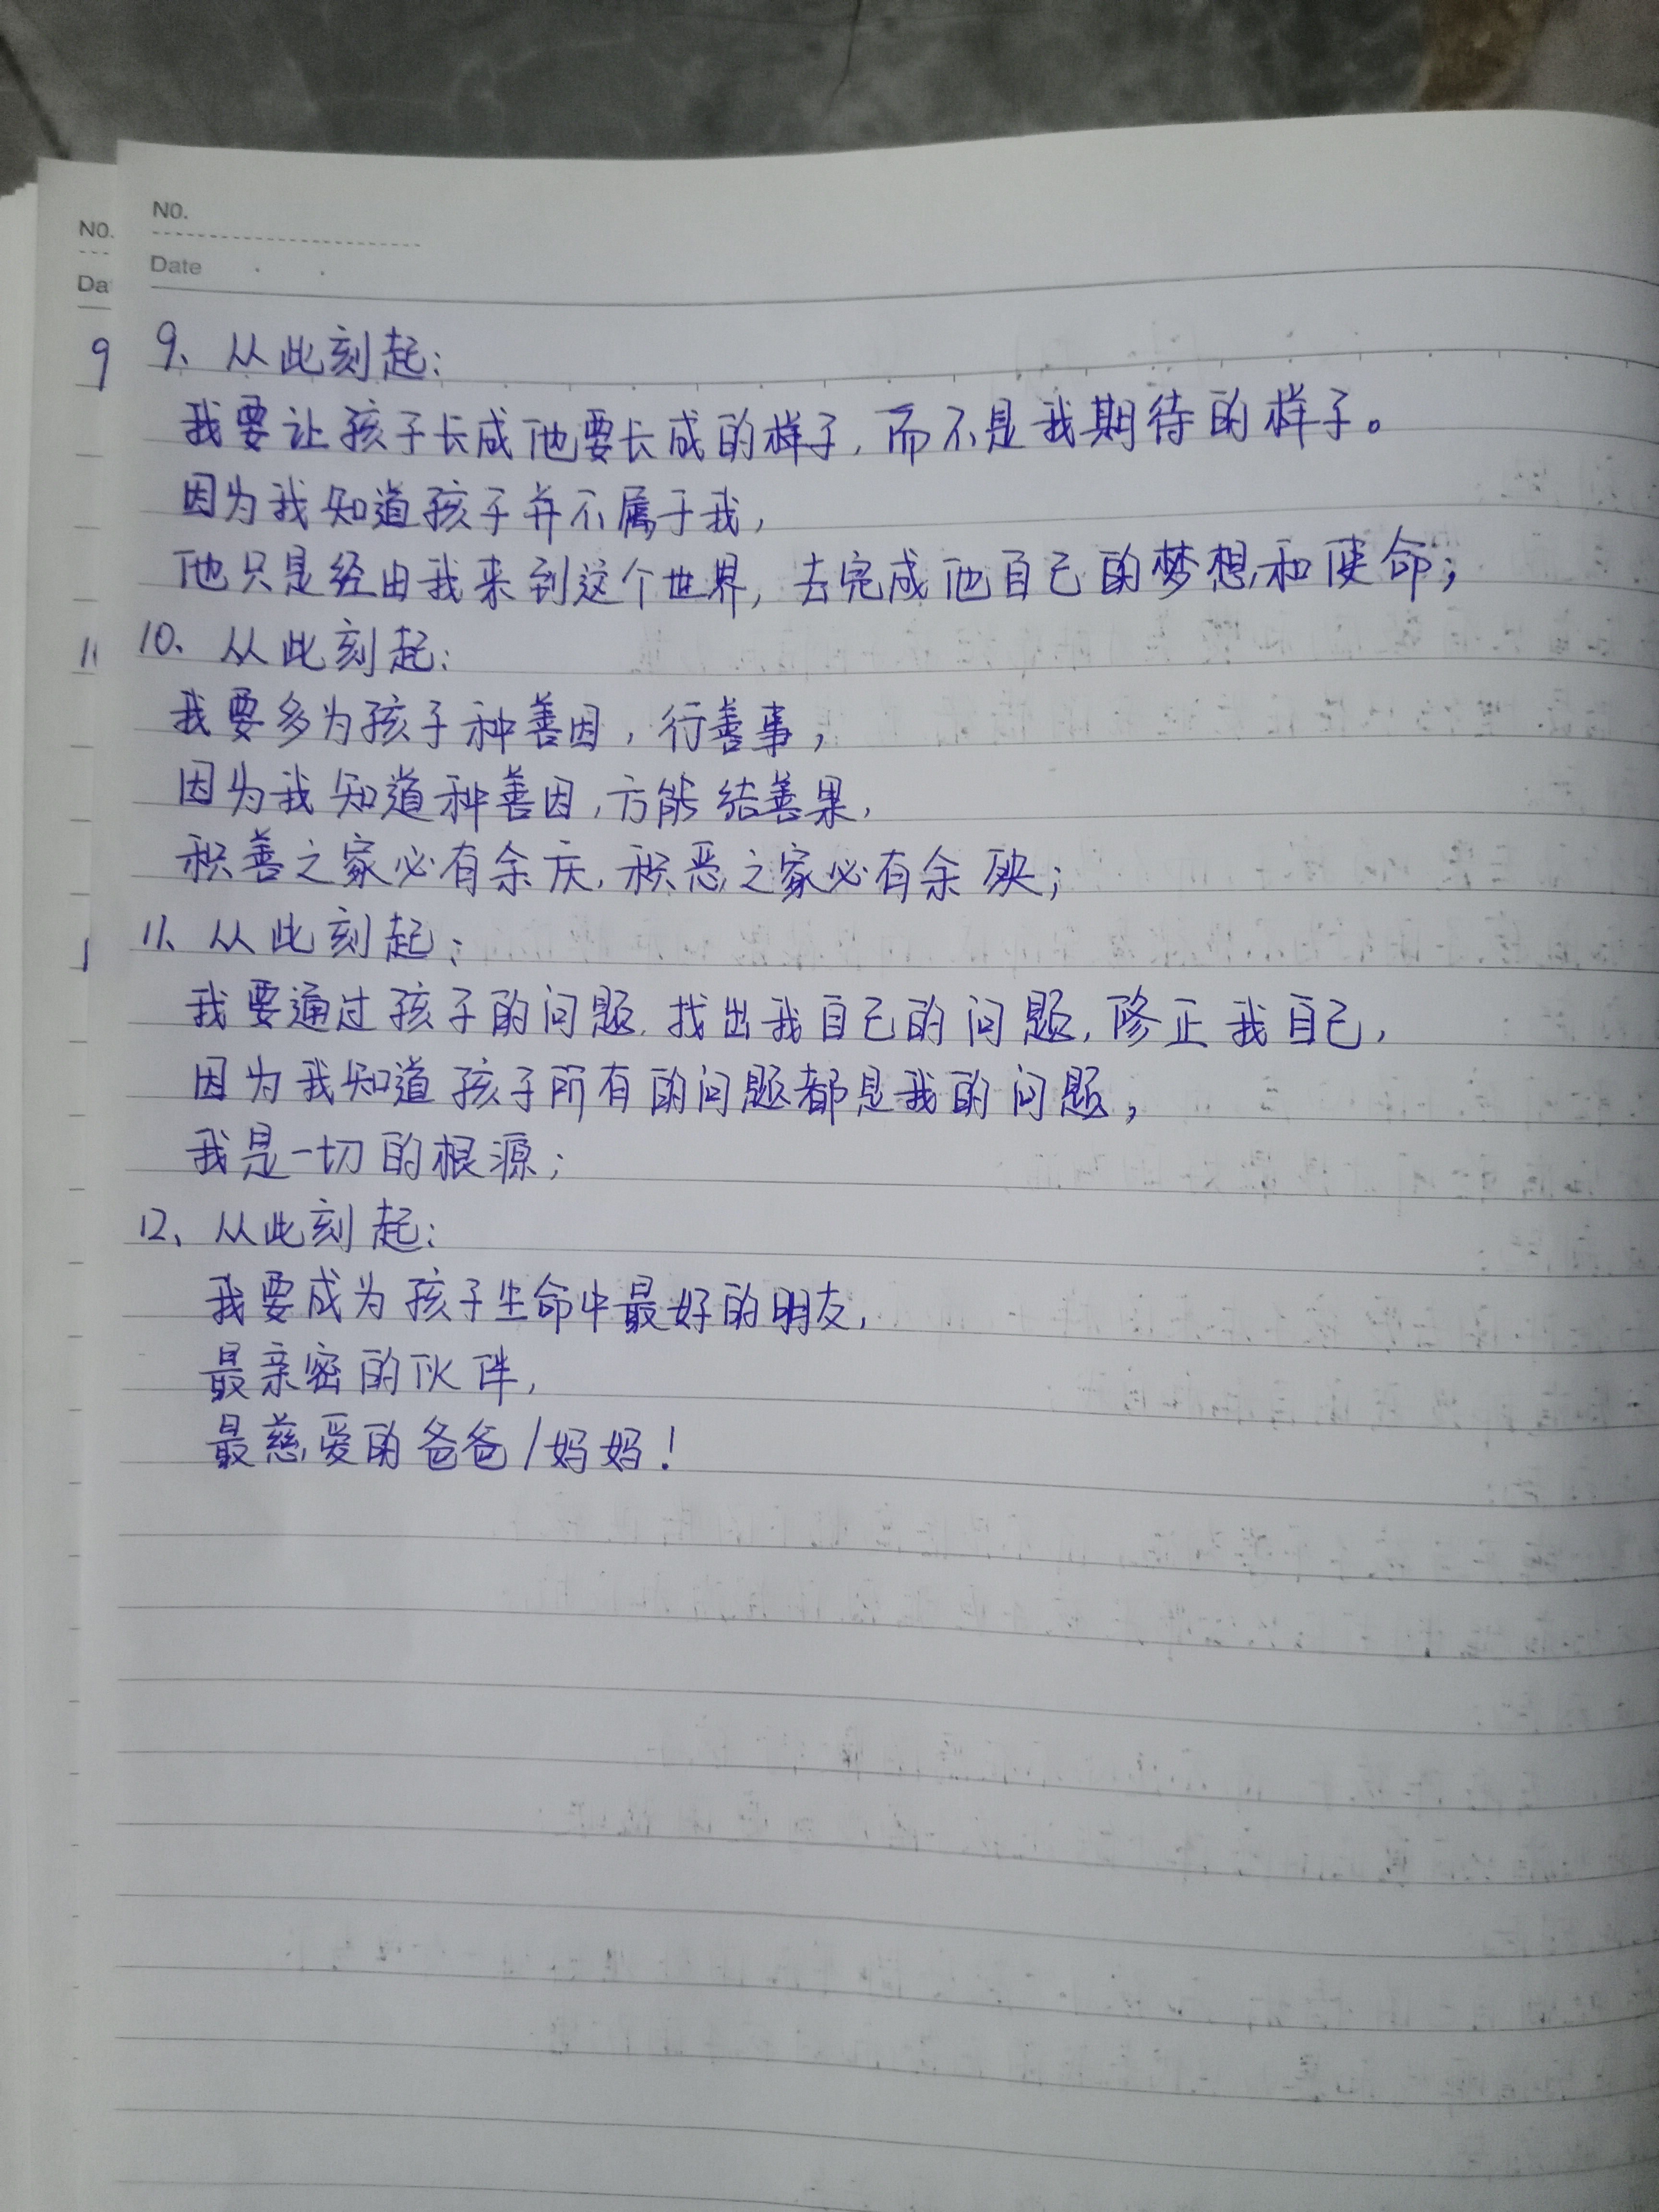 NO.
Date
NO.
Da
9
9、从此刻起:
我要让孩子长成他要长成的样子,而不是我期待的样子。
因为我知道孩子并不属于我,
他只是经由我来到这个世界,去完成他自己的梦想和使命;
11
10、从此刻起:
我要多为孩子种善因,行善事,
因为我知道种善因,方能结善果,
积善之家必有余庆,积恶之家必有余殃;
11、从此刻起:
我要通过孩子的问题,找出我自己的问题,修正我自己,
因为我知道孩子所有的问题都是我的问题,
我是一切的根源;
12、从此刻起:
我要成为孩子生命中最好的朋友,
最亲密的伙伴,
最慈爱的爸爸/妈妈!